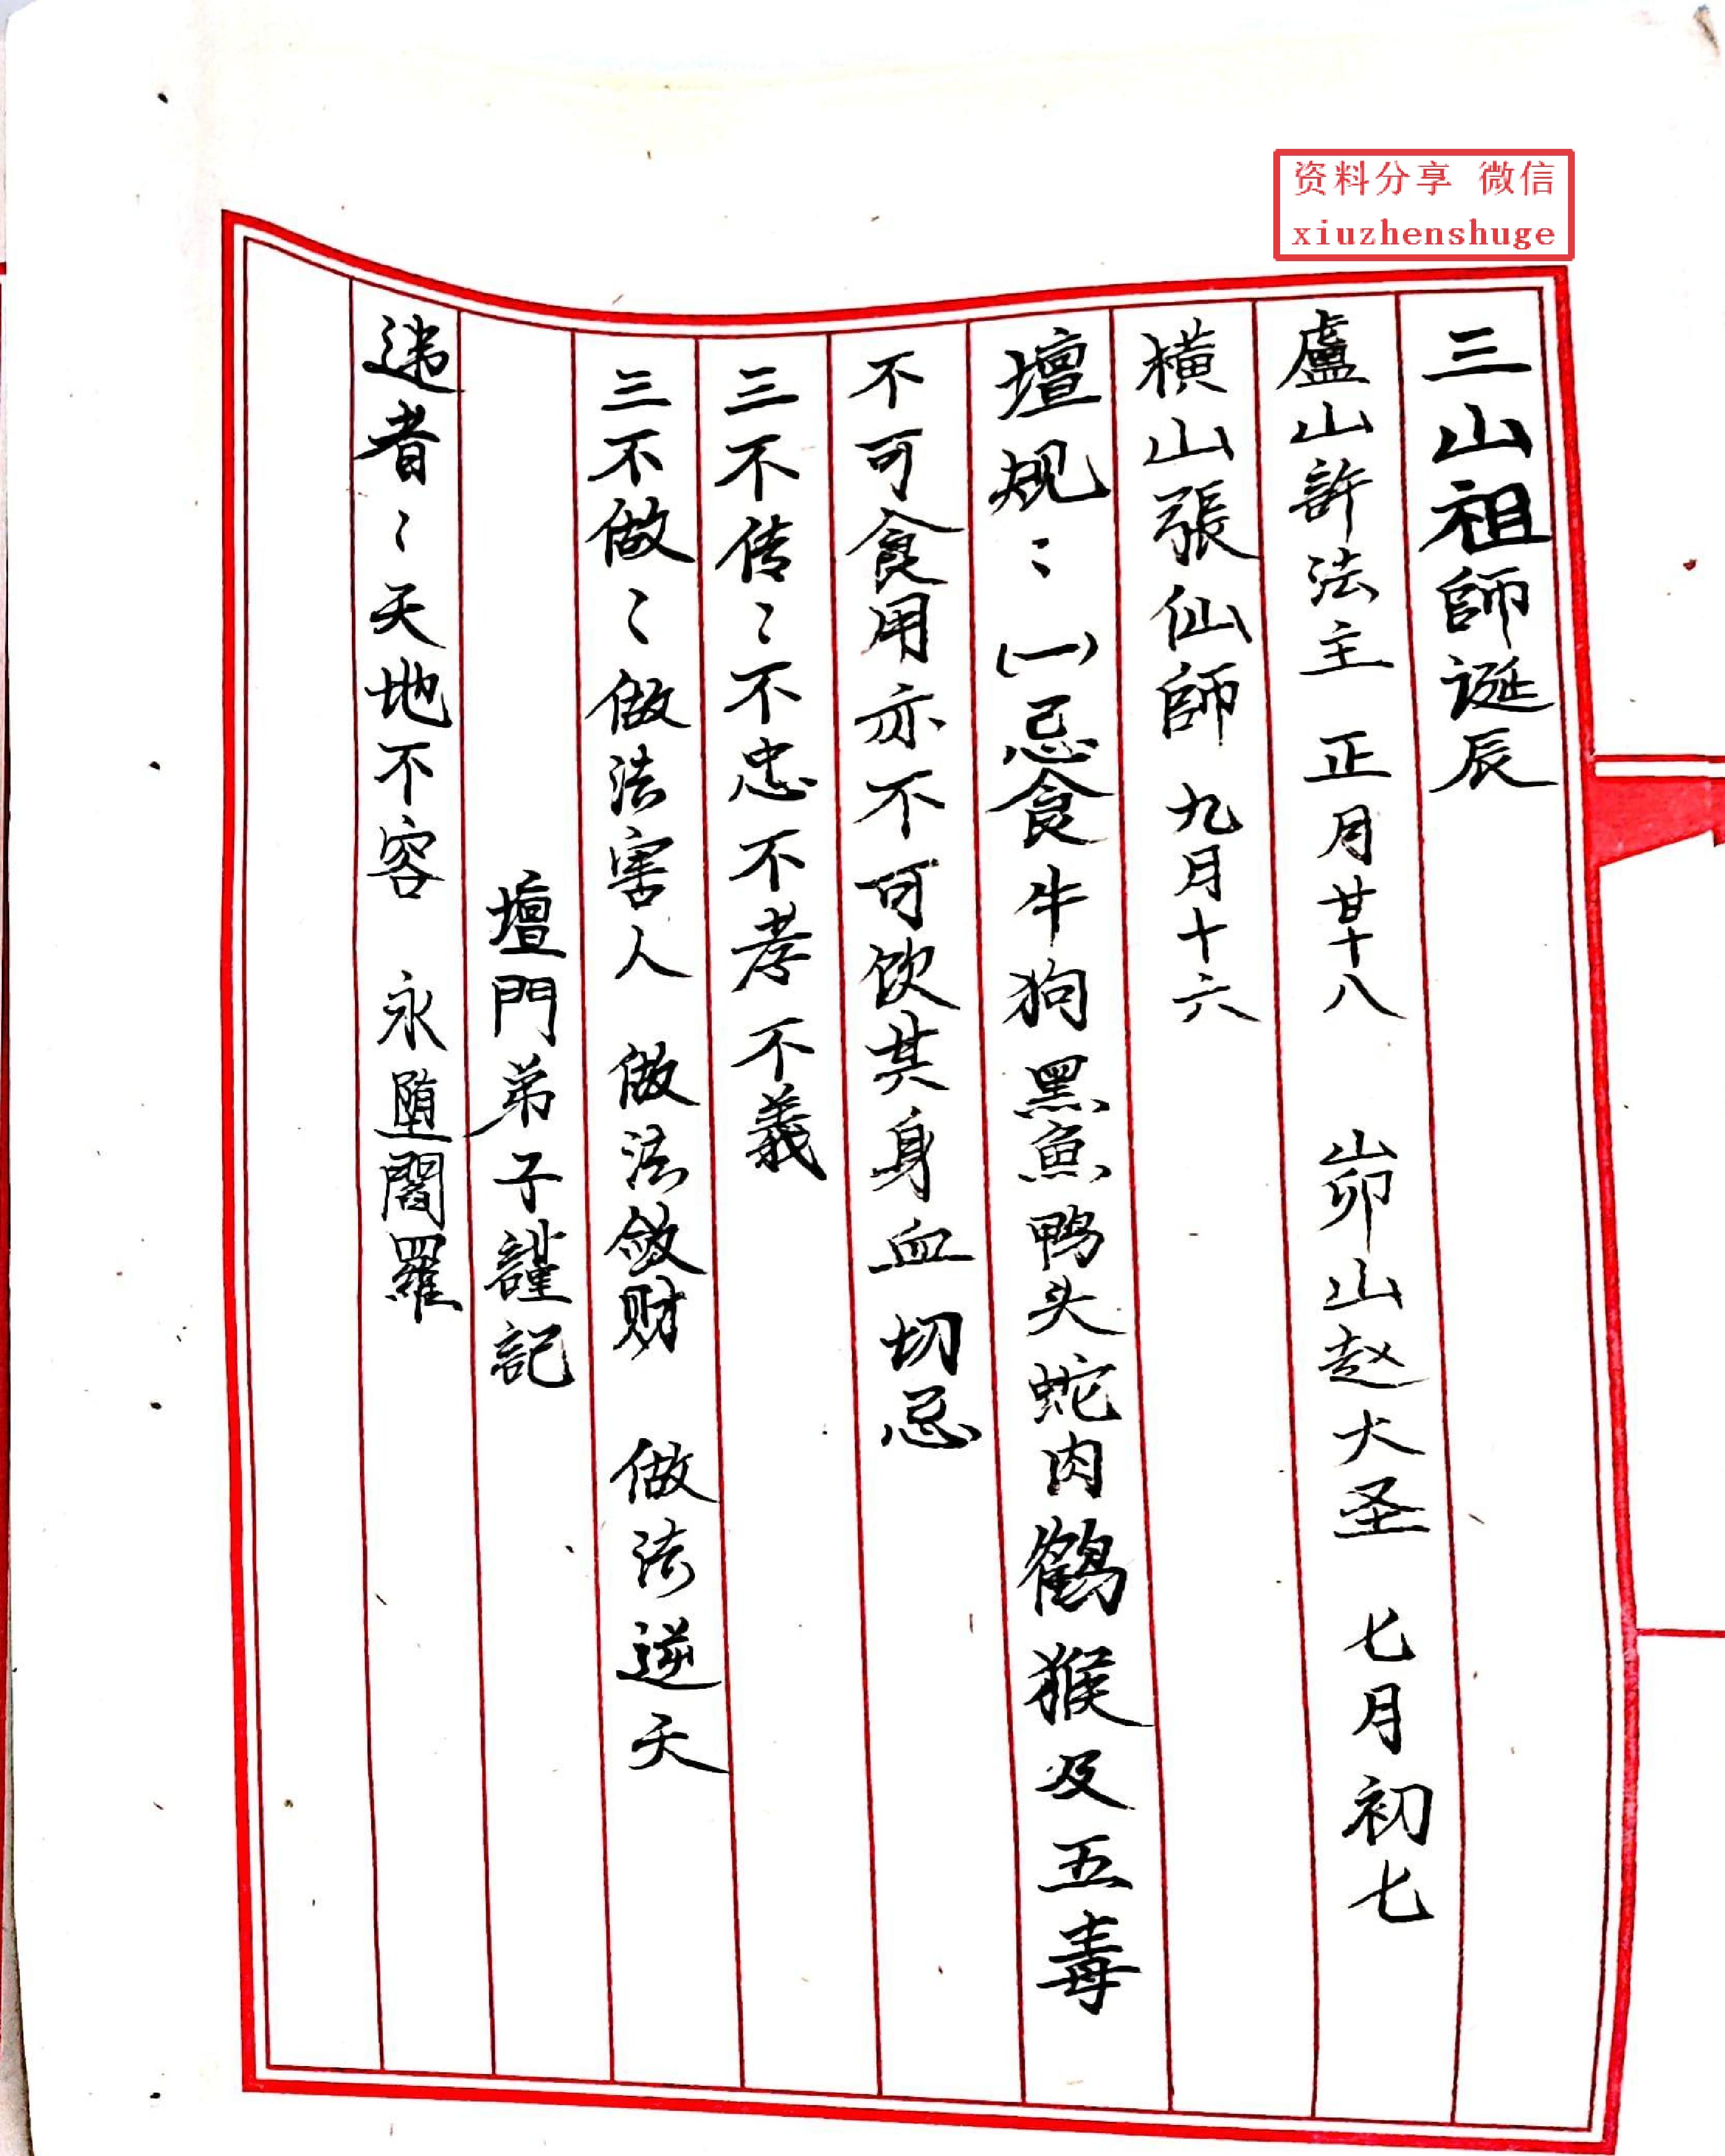 资料分享 微信
xiuzhenshuge
三山祖師誕辰
盧山許法主 正月廿十八 峁山赵大圣 七月初七
橫山張仙師 九月十六
壇规：(一)忌食牛狗黑魚鸭头蛇肉鶴猴及五毒
不可食用亦不可饮其身血切忌
三不传：不忠不孝不義
三不做：做法害人 做法斂财 做法逆天
壇門弟子謹記
违者：天地不容 永堕閻羅